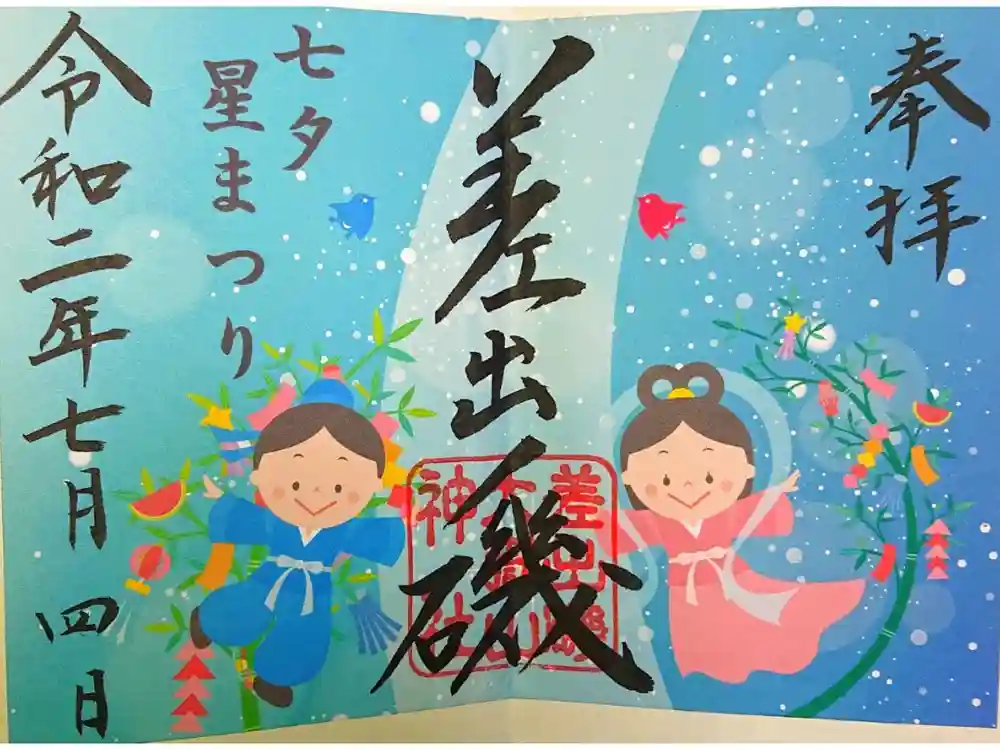 奉拝
差出磯
差出磯
大嶽山
神社
七夕
星まつり
令和二年七月四日